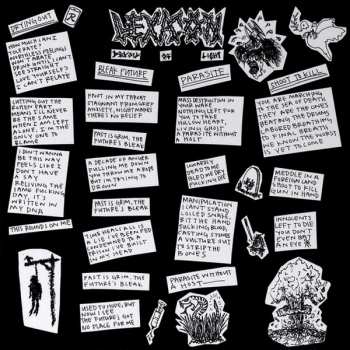 LEXICON
DEVOID OF LIGHT
OPTING OUT
HOW MUCH CAN I
TOLERATE?
WORTHLESS FEELINGS
NOW I HATE
DRINK UNTIL I CAN'T
SEE STRAIGHT
LOVE YOURSELF?
I CAN'T RELATE
CUTTING OUT THE
ROTTEN PART
MEANS I'LL NEVER
BE THE SAME
WHEN I AM LEFT
ALONE, I'M THE
ONLY ONE TO
BLAME
I DON'T WANNA
BE THIS WAY
FEELS LIKE I
DON'T HAVE
A SAY
RELIVING THE
SAME FUCKING
DAY, IT'S
WRITTEN IN
MY DNA
THIS ROUNDS ON ME
BLEAK FUTURE
KNOT IN MY THROAT
STAGNANT FROM GRIEF
ANXIETY, NIGHTMARES
THERE'S NO RELIEF
PAST IS GRIM, THE
FUTURE'S BLEAK
A DECADE OF ANGER
PULLING ME DOWN
YOU THROW ME A ROPE
BUT I'M TRYING TO
DROWN
PAST IS GRIM, THE
FUTURE'S BLEAK
TIME HEALS ALL IS
A LIE I'VE BEEN FED
PRISON I'VE BUILT
IN MY HEAD
PAST IS GRIM, THE
FUTURE'S BLEAK
USED TO HOPE, BUT
NOW I SEE
THE FUTURE'S GOT
NO PLACE FOR ME
PARASITE
MASS DESTRUCTION IN
YOUR WAKE
NOTHING LEFT FOR
YOU TO TAKE
HOLLOW HEART
LIVING GHOST
PARASITE WITHOUT
A HOST
INWARDLY
DEAD TO ME
HOLD ME DRY
FUCKING DIE
MANIPULATION
I CAN'T STAND
COILED SNAKE
BIT THE HAND
SUCKING BLOOD
RAPING STONES
A VULTURE OUT
TO STRIP THE
BONES
PARASITE WITHOUT
A HOST
SHOOT TO KILL
YOU ARE MARCHING
IN THE SEA OF DEATH
THEY ARE THE ONES
BEATING THE DRUMS
WITH YOUR
LABORED BREATH
DEATH IS NEAR
WE KNOW THE WORST
IS YET TO COME
MEDDLE IN A
FOREIGN LAND
SHOOT TO KILL
GUN IN HAND
INNOCENTS
LEFT TO DIE
YOU DON'T
EVEN BAT
AN EYE